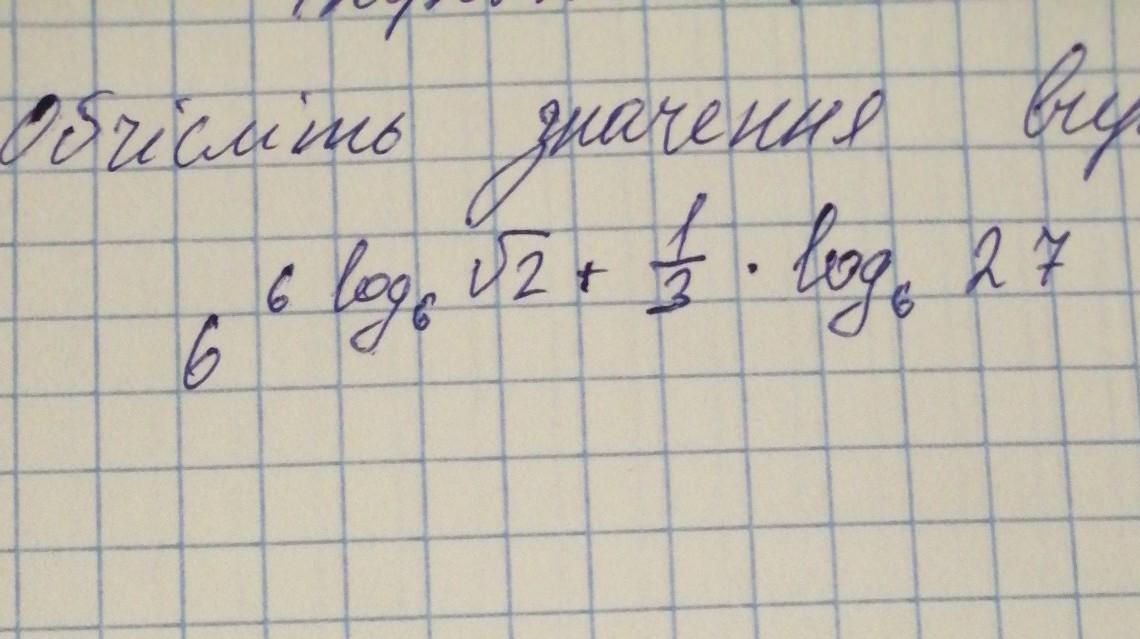 Обчісліть значення
6^{6 log_6 √2 + 1/3 · log_6 27}